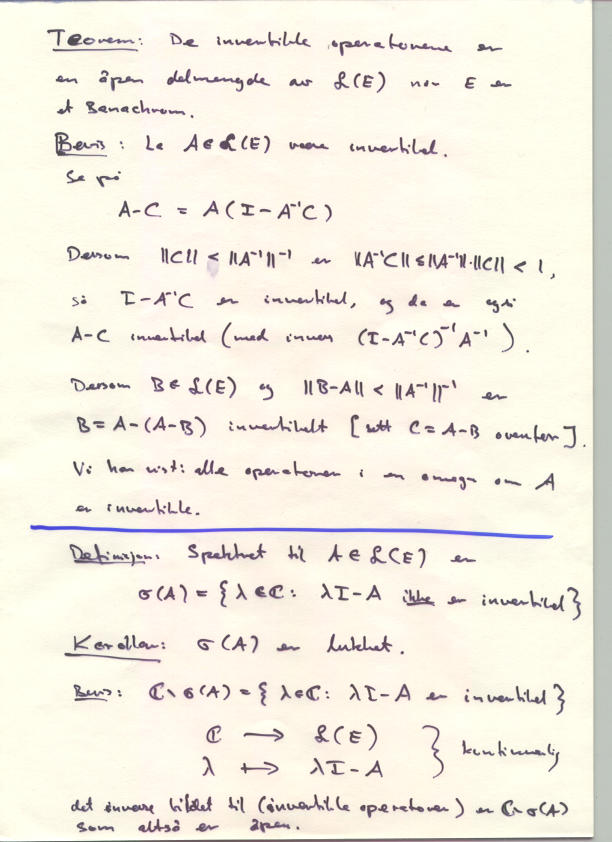 Teorem: De invertible operatorene er
en åpen delmengde av L(E) når E er
et Banachrom.
Bevis: La A∈L(E) være invertibel.
Se på
A-C = A(I-A⁻¹C)
Dersom ||C|| < ||A⁻¹||⁻¹ er ||A⁻¹C|| ≤ ||A⁻¹||·||C|| < 1,
så I-A⁻¹C er invertibel, og da er også
A-C invertibel (med invers (I-A⁻¹C)⁻¹A⁻¹).
Dersom B∈L(E) og ||B-A|| < ||A⁻¹||⁻¹ er
B=A-(A-B) invertibelt [sett C=A-B ovenfor].
Vi har vist: alle operatorer i en omegn om A
er invertible.
Definisjon: Spektret til A∈L(E) er
σ(A) = {λ∈ℂ: λI-A ikke er invertibel}
Korollar: σ(A) er lukket.
Bevis: ℂ∖σ(A) = {λ∈ℂ: λI-A er invertibel}
ℂ → L(E)
λ ↦ λI-A } kontinuerlig
det inverse bildet til (invertible operatorer) er ℂ∖σ(A)
som altså er åpen.